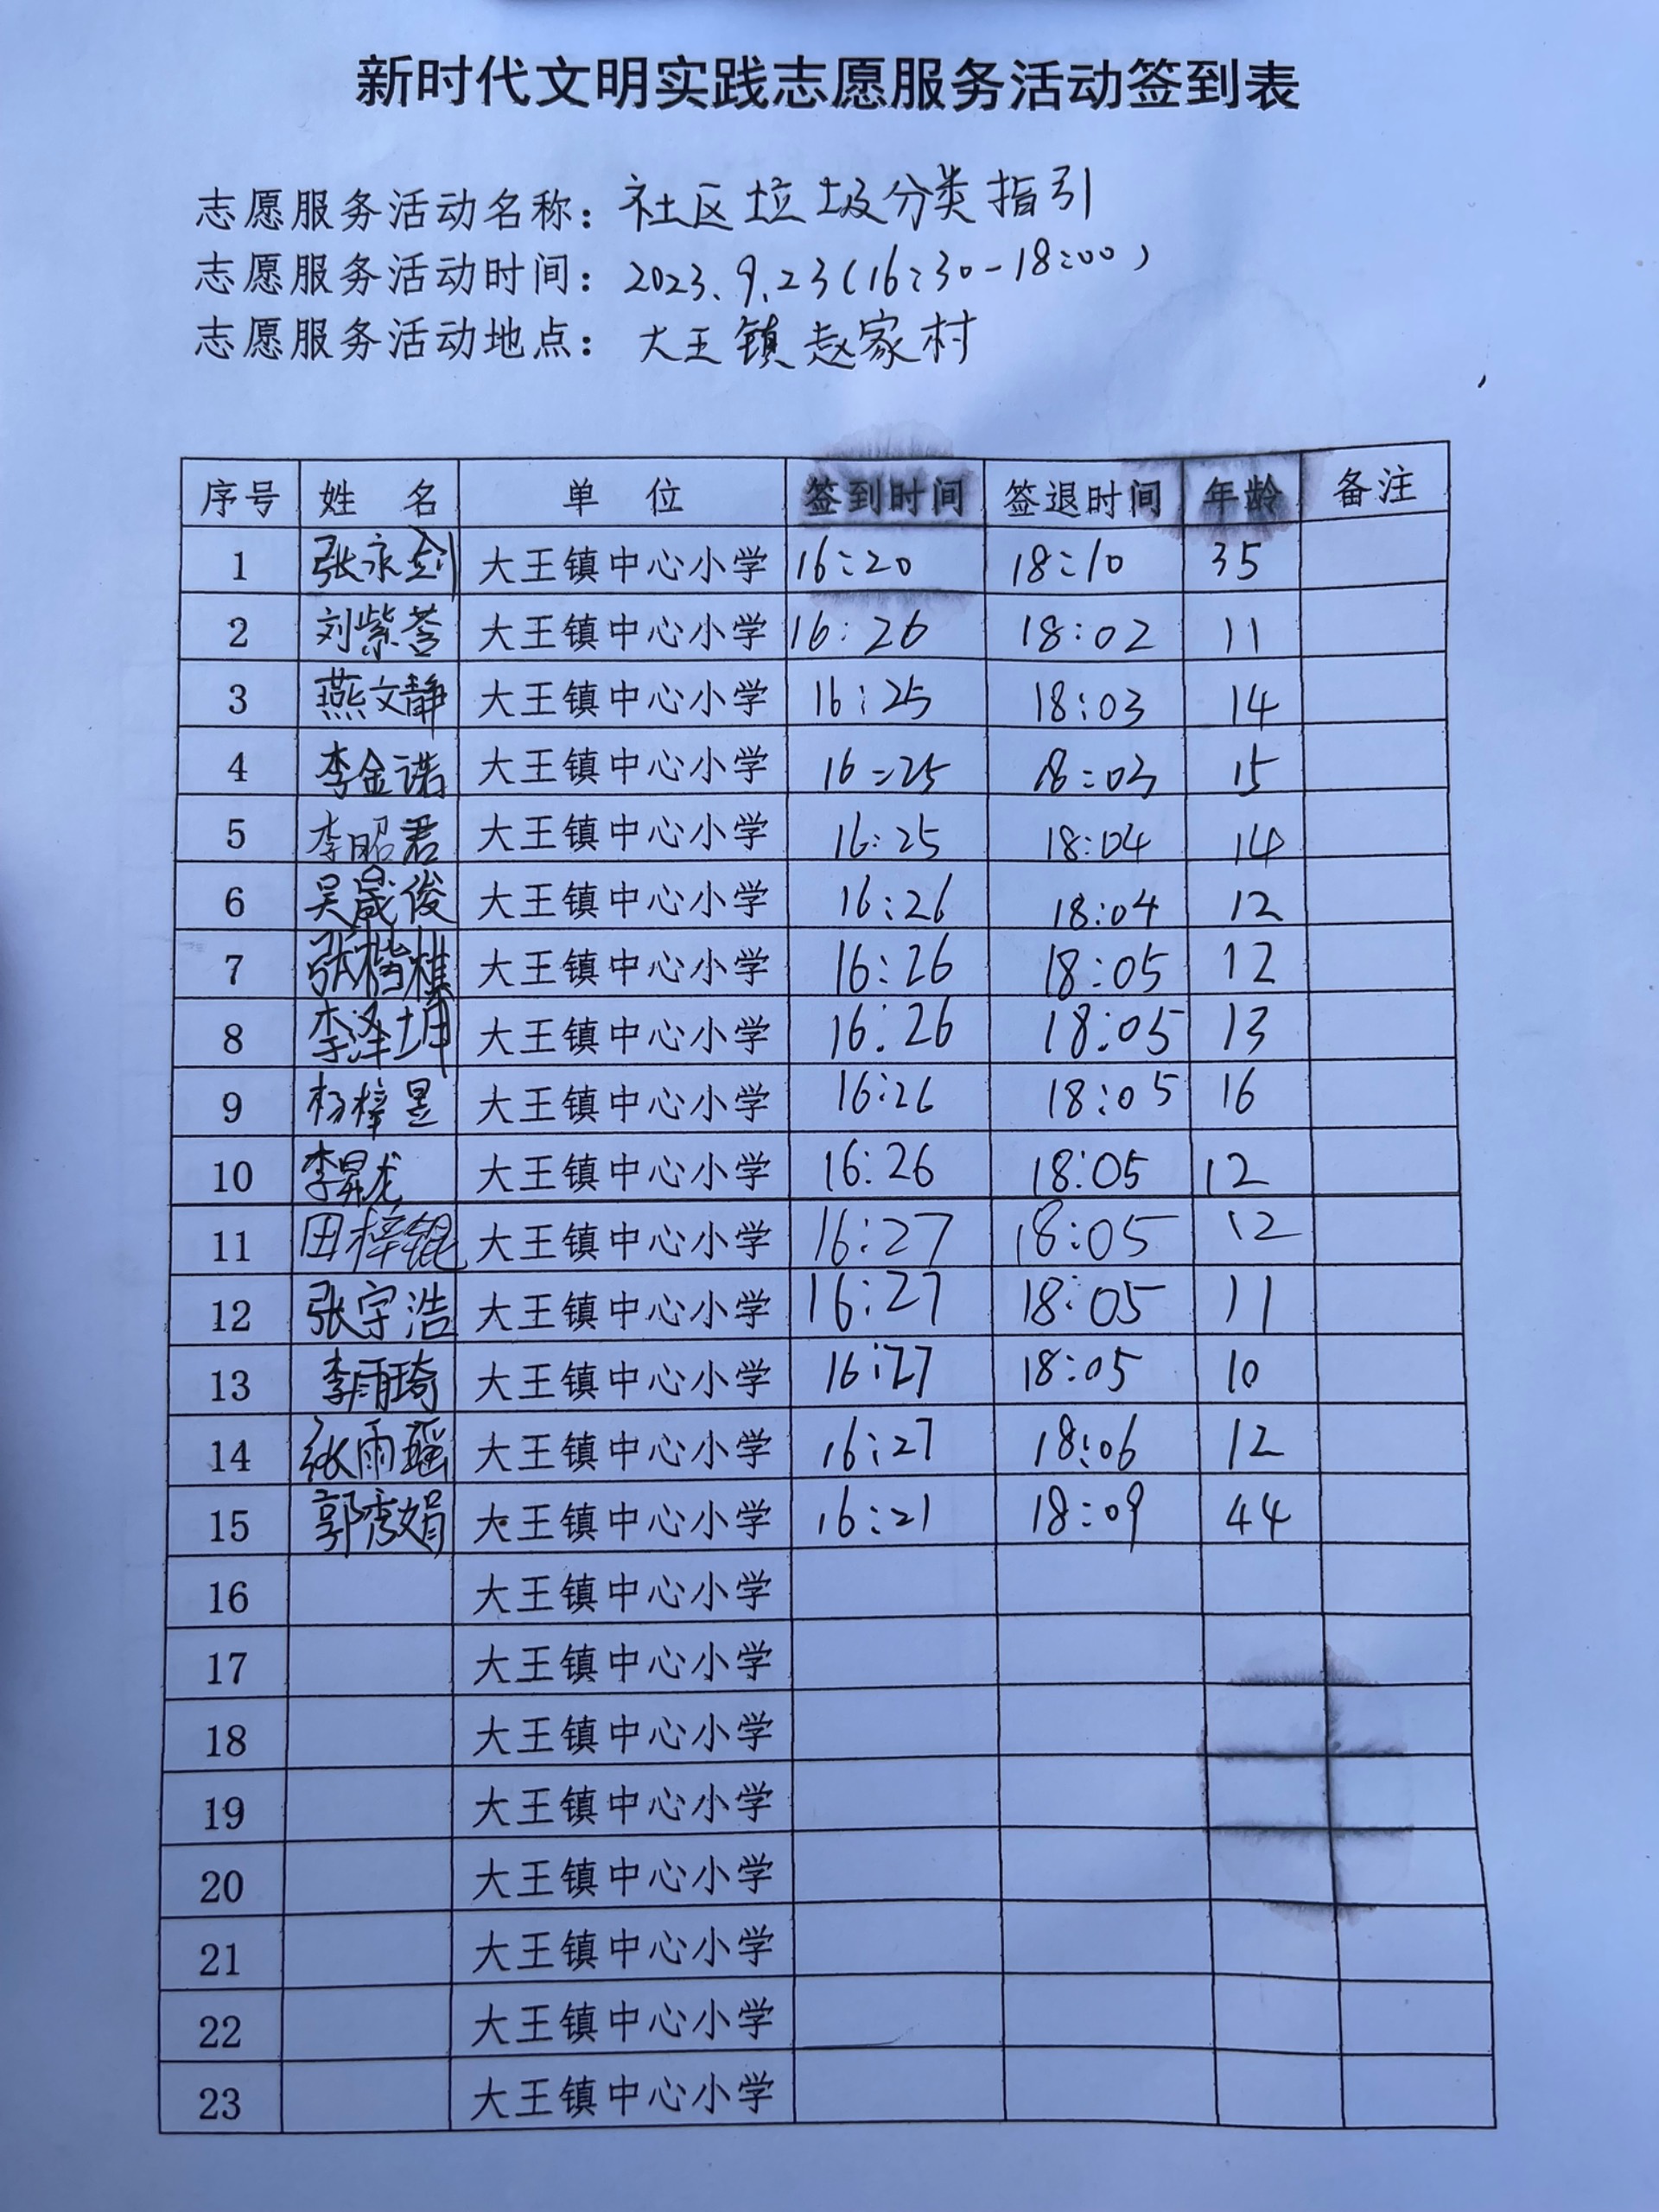 新时代文明实践志愿服务活动签到表
志愿服务活动名称：社区垃圾分类指引
志愿服务活动时间：2023.9.23(16:30-18:00)
志愿服务活动地点：大王镇赵家村
序号 姓 名 单 位 签到时间 签退时间 年龄 备注
1 张永剑 大王镇中心小学 16:20 18:10 35
2 刘紫荟 大王镇中心小学 16:26 18:02 11
3 燕文静 大王镇中心小学 16:25 18:03 14
4 李金诺 大王镇中心小学 16:25 18:03 15
5 李昭君 大王镇中心小学 16:25 18:04 14
6 吴晟俊 大王镇中心小学 16:26 18:04 12
7 大王镇中心小学 16:26 18:05 12
8 李泽坤 大王镇中心小学 16:26 18:05 13
9 杨梓昱 大王镇中心小学 16:26 18:05 16
10 李昇龙 大王镇中心小学 16:26 18:05 12
11 田梓锟 大王镇中心小学 16:27 18:05 12
12 张宇浩 大王镇中心小学 16:27 18:05 11
13 李雨琦 大王镇中心小学 16:27 18:05 10
14 张雨瑶 大王镇中心小学 16:27 18:06 12
15 郭秀娟 大王镇中心小学 16:21 18:09 44
16 大王镇中心小学
17 大王镇中心小学
18 大王镇中心小学
19 大王镇中心小学
20 大王镇中心小学
21 大王镇中心小学
22 大王镇中心小学
23 大王镇中心小学